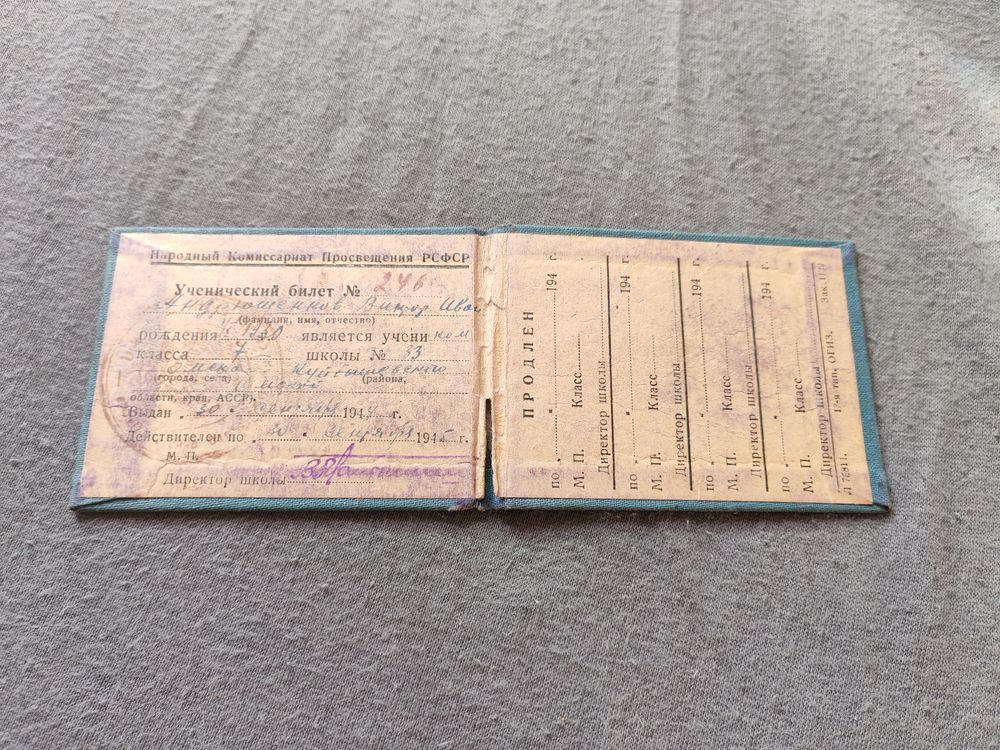 Народный Комиссариат Просвещения РСФСР
Ученический билет № 246
Андрюшенков Виктор Иван
(фамилия, имя, отчество)
рождения является учеником
класса 7 школы № 33
Омска Куйбышевского
(города, села) (района,
Омской
области, края, АССР).
Выдан 30 сентября 1944 г.
Действителен по сентября 1945 г.
М. П.
Директор школы
ПРОДЛЕН
по 194 г.
М. П. Класс
Директор школы
по 194 г.
М. П. Класс
Директор школы
по 194 г.
М. П. Класс
Директор школы
по 194 г.
М. П. Класс
Директор школы